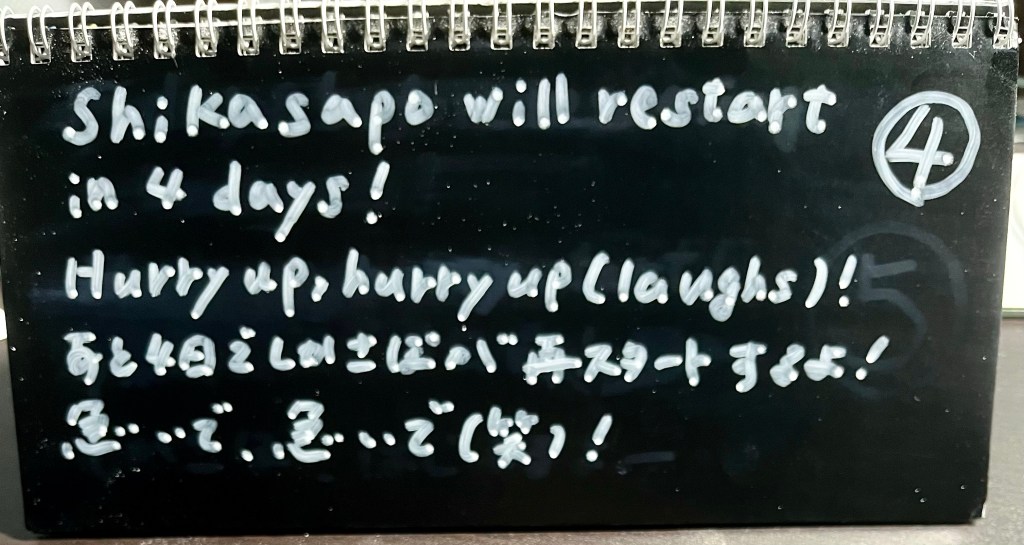 Shikasapo will restart
④
in 4 days!
Hurry up, hurry up (laughs)!
5
あと4日でしかさぽが再スタートするよ!
急いで、急いで(笑)!